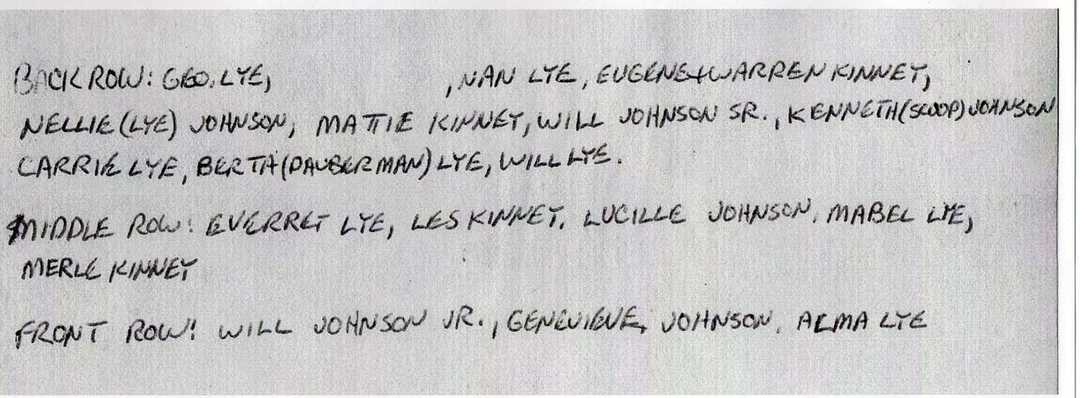 BACK ROW: GEO. LYE,                    , NAN LYE, EUGENE + WARREN KINNEY,
NELLIE (LYE) JOHNSON, MATTIE KINNEY, WILL JOHNSON SR., KENNETH (SCOOP) JOHNSON
CARRIE LYE, BERTA (DAUBERMAN) LYE, WILL LYE.
MIDDLE ROW: EVERRET LYE, LES KINNEY, LUCILLE JOHNSON, MABEL LYE,
MERLE KINNEY
FRONT ROW: WILL JOHNSON JR., GENEVIEVE, JOHNSON, ALMA LYE